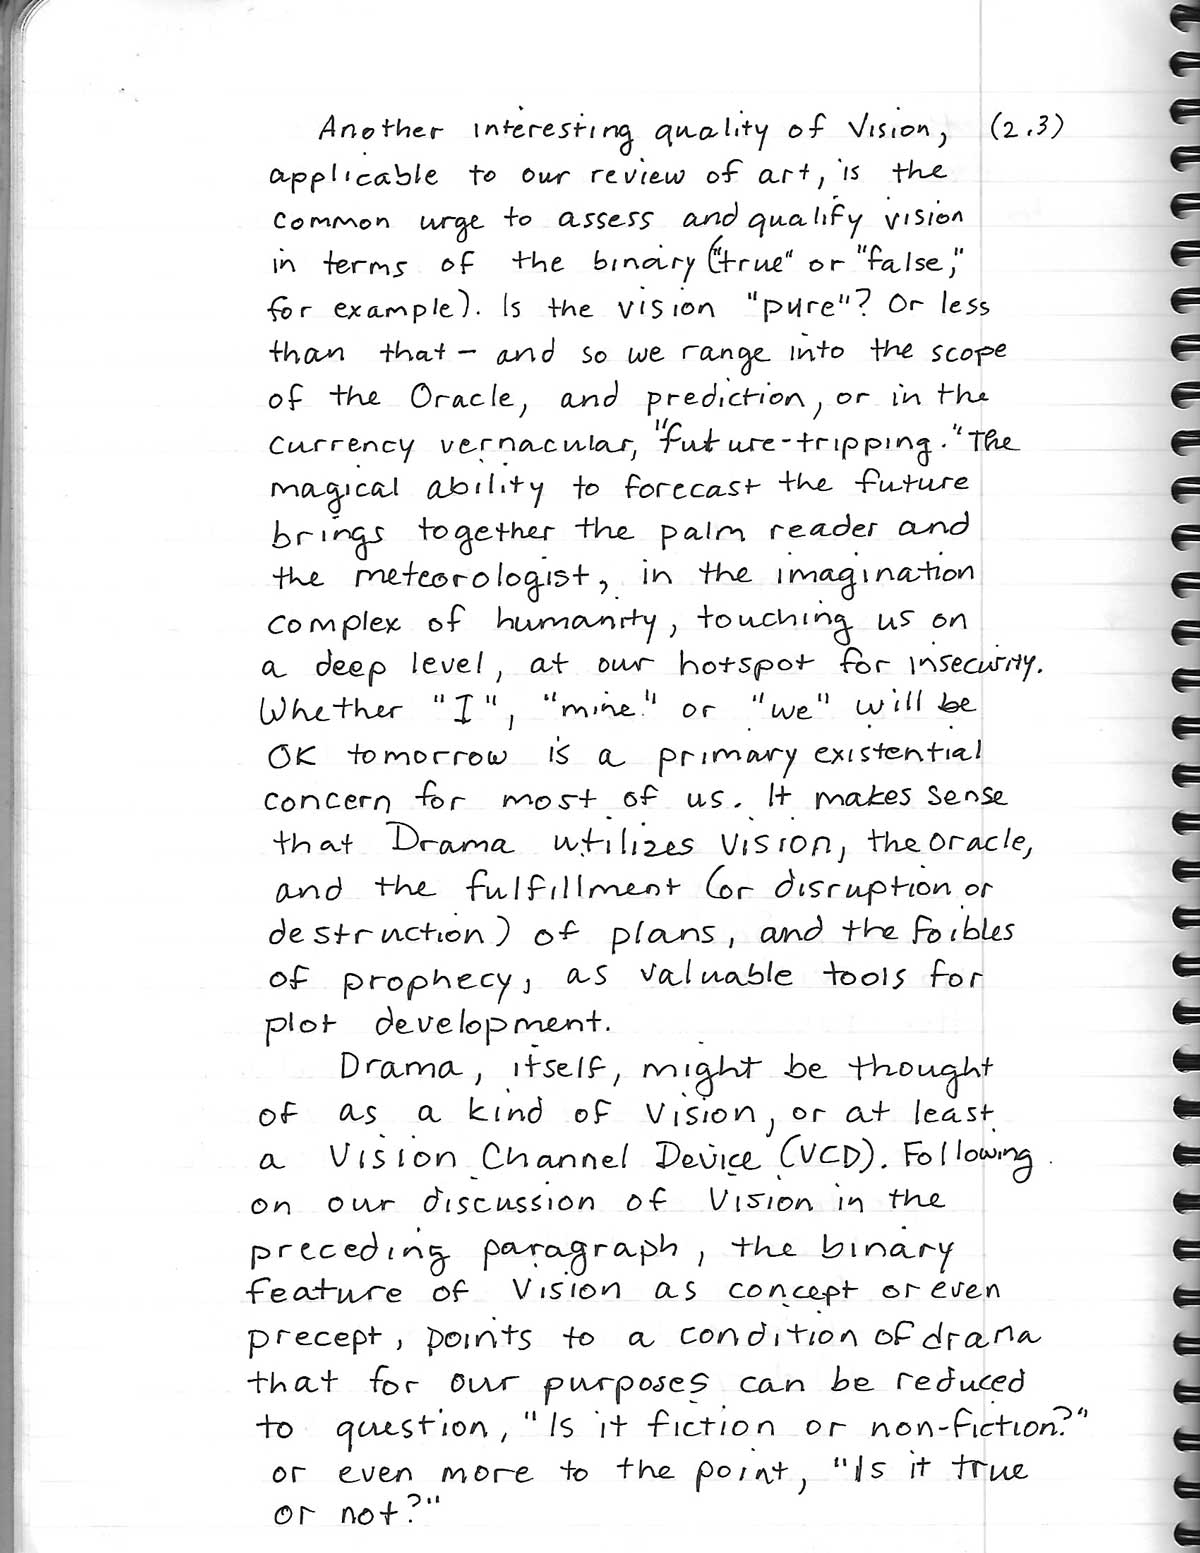 Another interesting quality of Vision, (2.3)
applicable to our review of art, is the
common urge to assess and qualify vision
in terms of the binary ("true" or "false,"
for example). Is the vision "pure"? Or less
than that – and so we range into the scope
of the Oracle, and prediction, or in the
currency vernacular, "future-tripping." The
magical ability to forecast the future
brings together the palm reader and
the meteorologist, in the imagination
complex of humanity, touching us on
a deep level, at our hotspot for insecurity.
Whether "I", "mine" or "we" will be
OK tomorrow is a primary existential
concern for most of us. It makes sense
that Drama utilizes vision, the oracle,
and the fulfillment (or disruption or
destruction) of plans, and the foibles
of prophecy, as valuable tools for
plot development.
Drama, itself, might be thought
of as a kind of Vision, or at least
a Vision Channel Device (VCD). Following
on our discussion of Vision in the
preceding paragraph, the binary
feature of Vision as concept or even
precept, points to a condition of drama
that for our purposes can be reduced
to question, "Is it fiction or non-fiction?"
or even more to the point, "Is it true
or not?"